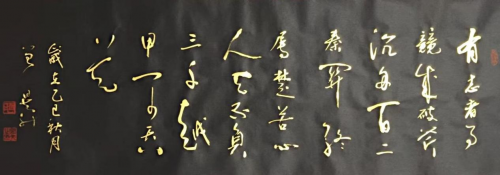 有志者事
竟成破釜
沉舟百二
秦關終
屬楚苦心
人天不負
三千越
甲可吞
吳
歲在乙巳秋月